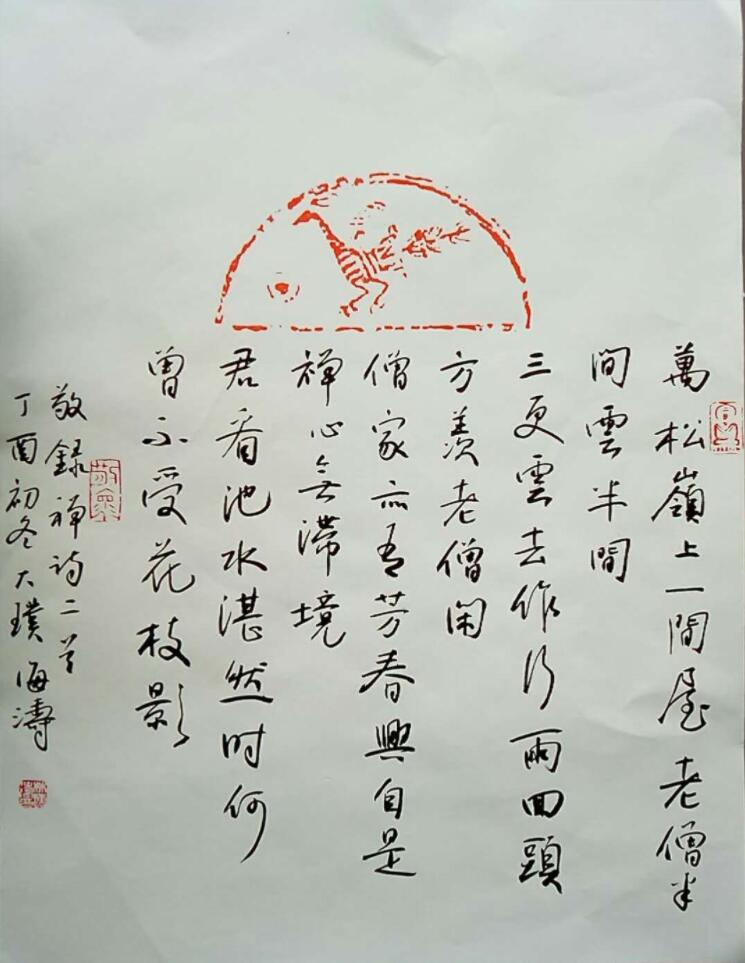 萬松嶺上一間屋老僧半
间雲半間
三更雲去作行雨回頭
方羨老僧闲
僧家亦有芳春興自是
禅心无滞境
君看池水湛然时何
曾不受花枝影
敬録禅诗二首
丁酉初冬大璞海濤